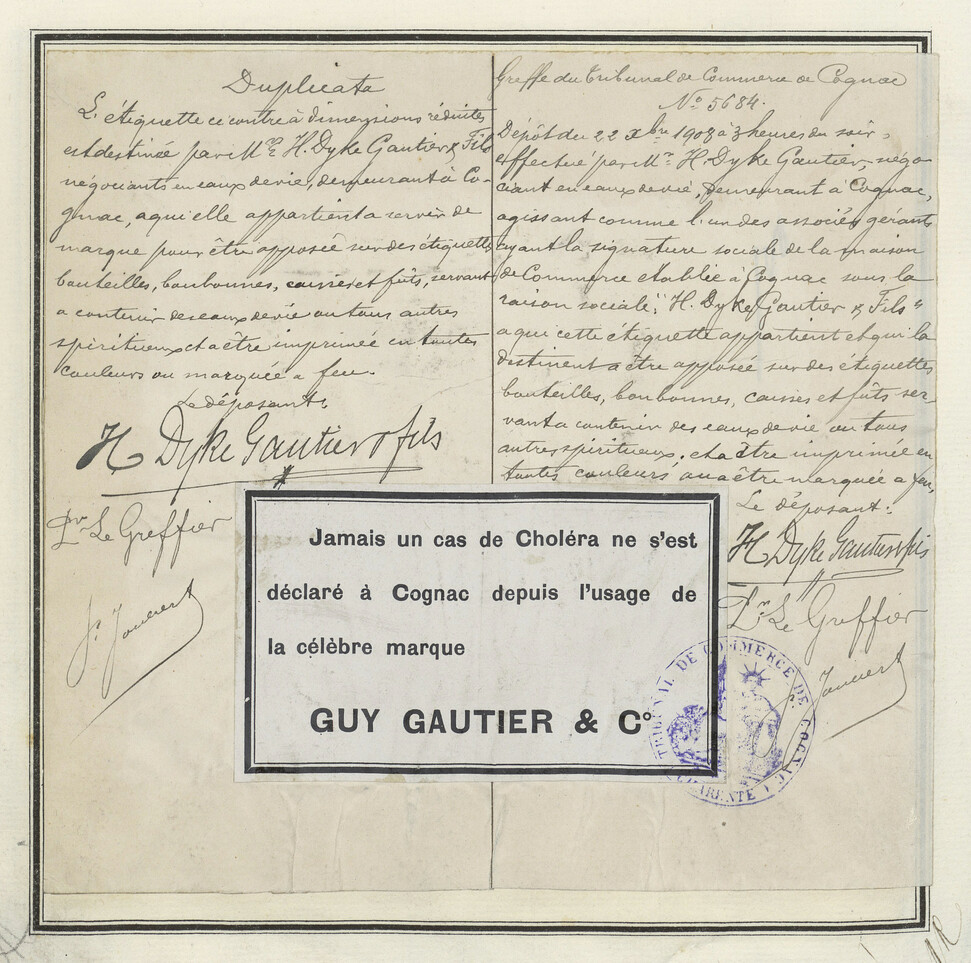 Duplicata
L'étiquette ci contre à dimensions réduites
est destinée par Mrs H. Dyke Gautier & Fils
négociants en eaux de vie, demeurant à Co-
gnac, a qui elle appartient a servir de
marque pour être apposée sur des étiquettes
bouteilles, bonbonnes, caisses et fûts, servant
a contenir des eaux de vie ou tous autres
spiritueux et a être imprimée en toutes
couleurs ou marquée a feu.
Le déposant,
H Dyke Gautier & fils
Pr Le Greffier
Greffe du tribunal de Commerce de Cognac
No 5684.
Dépôt du 22 Xbre 1908 à 3 heures du soir
effectué par Mr H. Dyke Gautier, négo-
ciant en eaux de vie, demeurant à Cognac,
agissant comme l'un des associés gérants
ayant la signature sociale de la maison
de Commerce etablie à Cognac sous la
raison sociale: "H. Dyke Gautier & Fils"
a qui cette étiquette appartient et qui la
destinent a être apposée sur des étiquettes
bouteilles, bonbonnes, caisses et fûts ser-
vant a contenir des eaux de vie ou tous
autres spiritueux, et a être imprimée en
toutes couleurs ou a être marquée a feu.
Le déposant:
H Dyke Gautier & fils
Pr Le Greffier
Jamais un cas de Choléra ne s'est
déclaré à Cognac depuis l'usage de
la célèbre marque
GUY GAUTIER & Co
TRIBUNAL DE COMMERCE DE COGNAC
CHARENTE